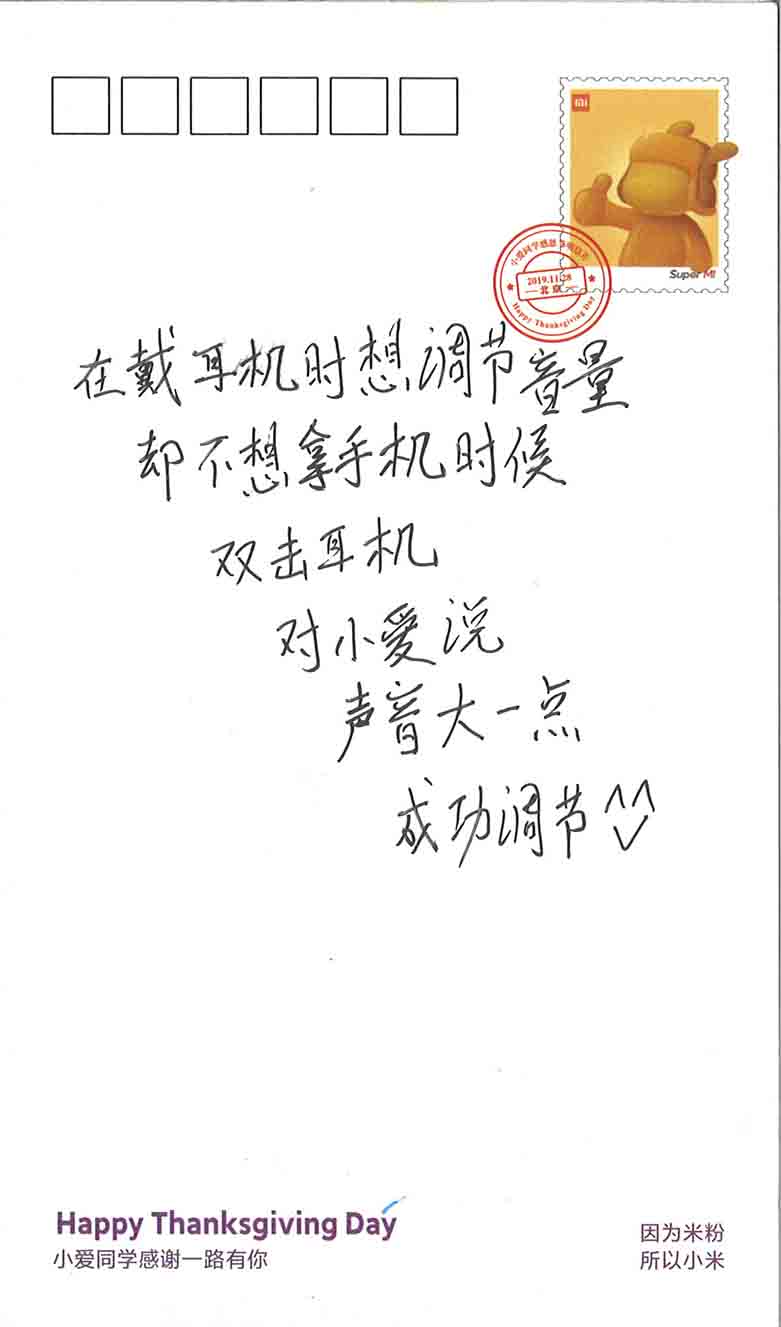 MI
Super MI
小爱同学感恩节明信片
2019.11.28
北京
Happy Thanksgiving Day
在戴耳机时想调节音量
却不想拿手机时候
双击耳机
对小爱说
声音大一点
成功调节^^
Happy Thanksgiving Day
小爱同学感谢一路有你
因为米粉
所以小米